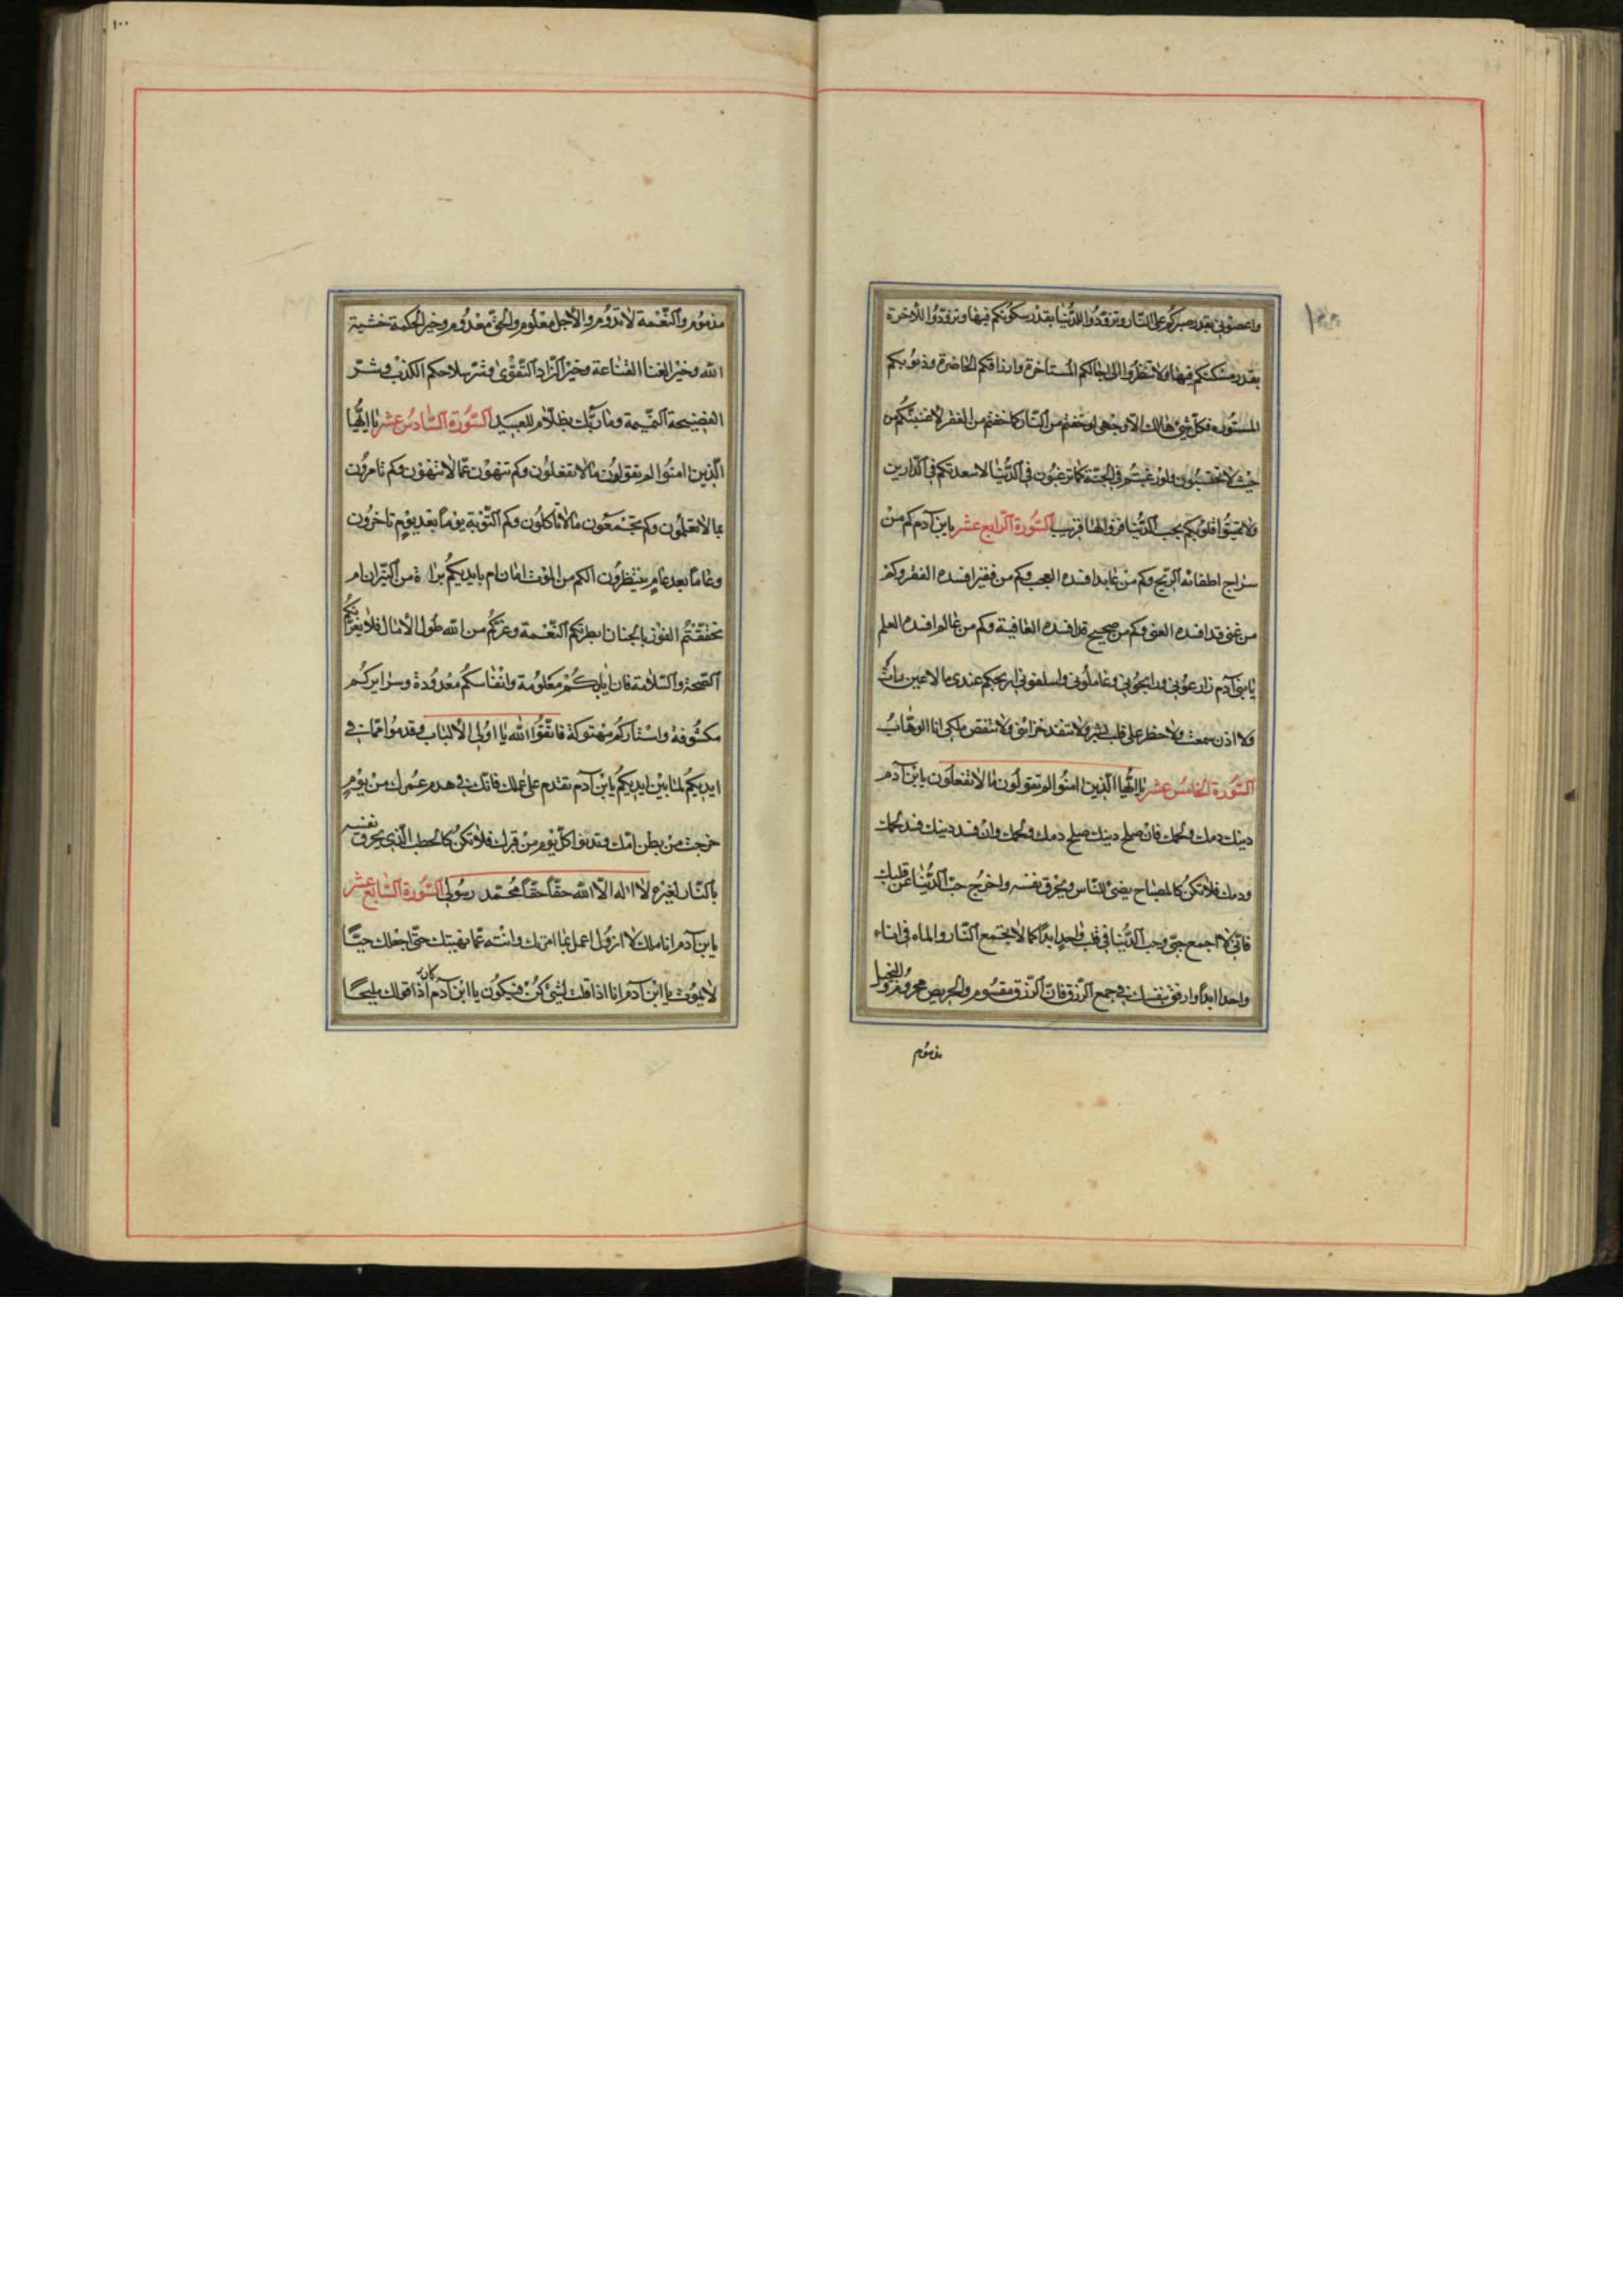 واعصوني بقدر صبركم على النار وتزودوا للدنيا بقدر سكونكم فيها وتزودوا للآخرة
بقدر مسكنكم فيها ولا تنظروا الى اجالكم المستاخرة وارزاقكم الحاضرة وذنوبكم
المستورة فكل شئ هالك الا وجهى لو خفتم من النار كما خفتم من الفقر لاغنيتكم من
حيث لا تحتسبون ولو رغبتم في الجنة كما ترغبون في الدنيا لاسعدتكم في الدارين
ولا تميتوا قلوبكم بحب الدنيا فزوالها قريب السورة الرابع عشر يابن آدم كم من
سراج اطفائه الريح وكم من عابد افسده العجب وكم من فقير افسده الفقر وكم
من غني قد افسده الغنى وكم من صحيح قد افسده العافية وكم من عالم افسده العلم
يا بنى آدم زارعوني ورابحوني وعاملوني واسلفوني اربحكم عندى ما لا عين رات
ولا اذن سمعت ولا خطر على قلب بشر ولا تنفد خزائني ولا تنقص ملكى انا الوهاب
السورة الخامس عشر يا ايها الذين امنوا لم تقولون ما لا تفعلون يابن آدم
دينك دمك ولحمك فان صلح دينك صلح دمك ولحمك وان فسد دينك فسد لحمك
ودمك فلا تكن كالمصباح يضئ للناس ويحرق نفسه واخرج حب الدنيا عن قلبك
فانى لا اجمع حبى وحب الدنيا في قلب واحد ابدا كما لا يجتمع النار والماء فى اناء
واحد ابدا وارفق بنفسك في جمع الرزق فان الرزق مقسوم والحريص محروم والبخيل
مذموم
مذموم والنعمة لا تدوم والاجل معلوم والحق معدوم وخير الحكمة خشية
الله وخير الغنا القناعة وخير الزاد التقوى وشر سلاحكم الكذب وشر
الفضيحة النميمة وما ربك بظلام للعبيد السورة السادس عشر يا ايها
الذين امنوا لم تقولون ما لا تفعلون وكم تنهون عما لا تنتهون وكم تامرون
بما لا تعلمون وكم تجتمعون ما لا تاكلون وكم التوبة يوما بعد يوم تاخرون
وعاما بعد عام ينتظرون الكم من الموت امان ام بايديكم براة من النيران ام
تحققتم الفوز بالجنان ابطرتكم النعمة وغركم من الله طول الآمال فلا يغرنكم
الصحة والسلامة فان ايامكم معلومة وانفاسكم معدودة وسرايركم
مكشوفة واستاركم مهتوكة فاتقوا الله يا اولى الالباب وقدموا مما فى
ايديكم لما بين ايديكم يابن آدم تقدم على عملك فانك فى هدم عمرك من يوم
خرجت من بطن امك وتدنوا كل يوم من قبرك فلا تكن كالحطب الذى يحرق نفسه
بالنار لغيره لا اله الا الله حقا حقا محمد رسولى السورة السابع عشر
يابن آدم انا ملك لا ازول اعمل بما امرتك وانته عما نهيتك حتى اجعلك حيا
لا يموت يا ابن آدم انا اذا قلت لشئ كن فيكون يا ابن آدم اذا كان قولك مليحا